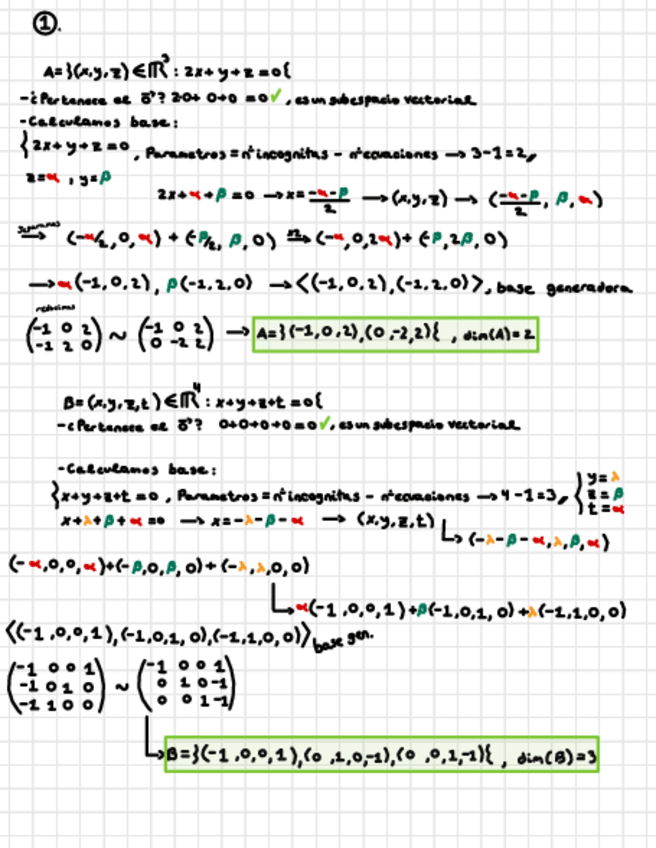 ①.
A=}(x,y,z) ∈ ℝ³ : 2x+y+z=0{
-¿Pertenece el 0⃗? 2·0+0+0=0✓, es un subespacio vectorial
-Calculamos base:
{2x+y+z=0, Parametros = nº incognitas - nº ecuaciones → 3-1=2,,
z=α, y=β
2x+α+β=0 → x=(-α-β)/2 → (x,y,z) → ((-α-β)/2, β, α)
separamos → (-α/2, 0, α) + (-β/2, β, 0) x2→ (-α,0,2α)+(-β,2β,0)
→ α(-1,0,2), β(-1,2,0) → <(-1,0,2),(-1,2,0)>, base generadora
reducimos
(-1 0 2 / -1 2 0) ~ (-1 0 2 / 0 -2 2) → A=}(-1,0,2),(0,-2,2){ , dim(A)=2
B=(x,y,z,t) ∈ ℝ⁴ : x+y+z+t=0{
-¿Pertenece el 0⃗? 0+0+0+0=0✓, es un subespacio vectorial
-Calculamos base:
{x+y+z+t=0, Parametros = nº incognitas - nº ecuaciones → 4-1=3,, {y=λ z=β t=α
x+λ+β+α=0 → x=-λ-β-α → (x,y,z,t)
↳ (-λ-β-α,λ,β,α)
(-α,0,0,α)+(-β,0,β,0)+(-λ,λ,0,0)
↳ α(-1,0,0,1)+β(-1,0,1,0)+λ(-1,1,0,0)
<(-1,0,0,1),(-1,0,1,0),(-1,1,0,0)> base gen.
(-1 0 0 1 / -1 0 1 0 / -1 1 0 0) ~ (-1 0 0 1 / 0 1 0 -1 / 0 0 1 -1)
↳ B=}(-1,0,0,1),(0,1,0,-1),(0,0,1,-1){ , dim(B)=3